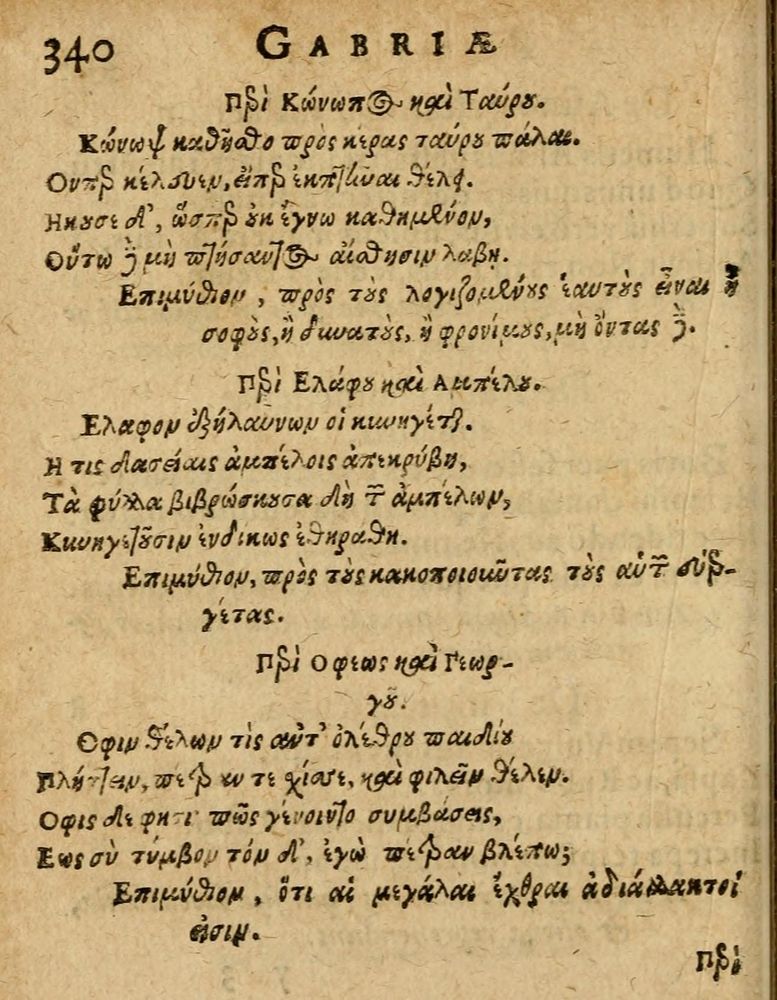 340 GABRIÆ
Περὶ Κώνωπος καὶ Ταύρου.
Κώνωψ καθῆστο πρὸς κέρας ταύρου πάλαι.
Ουπερ κέλευεν, εἴπερ ἐκπτῆναι θέλει.
Ηκουσε δ', ὥσπερ οὐκ ἔγνω καθημένον,
Οὕτω δὲ μὴ πτήσαντος αἴσθησιν λαβῃ.
Επιμύθιον, πρὸς τοὺς λογιζομένους ἑαυτοὺς εἶναι ἢ
σοφοὺς, ἢ δυνατοὺς, ἢ φρονίμους, μὴ ὄντας δέ.
Περὶ Ελάφου καὶ Αμπέλου.
Ελαφον ἐξήλαυνον οἱ κυνηγέται.
Η τις δασείαις ἀμπέλοις ἀπεκρύβη,
Τὰ φύλλα βιβρώσκουσα δὴ τῶν ἀμπέλων,
Κυνηγετοῦσιν ἐνδίκως ἐθηράθη.
Επιμύθιον, πρὸς τοὺς κακοποιοῦντας τοὺς αὑτῶν εὐερ-
γέτας.
Περὶ Οφεως καὶ Γεωρ-
γοῦ.
Οφιν θέλων τὶς ἀντ' ὀλέθρου παιδίου
Πλήττειν, πέτραν τε χίσε, καὶ φιλεῖν θέλεν.
Οφις δὲ φησι πῶς γένοιντο συμβάσεις,
Εως σὺ τύμβον τόν δ', ἐγὼ πέτραν βλέπω;
Επιμύθιον, ὅτι αἱ μεγάλαι ἔχθραι ἀδιάλλακτοί
εἰσιν.
Περὶ